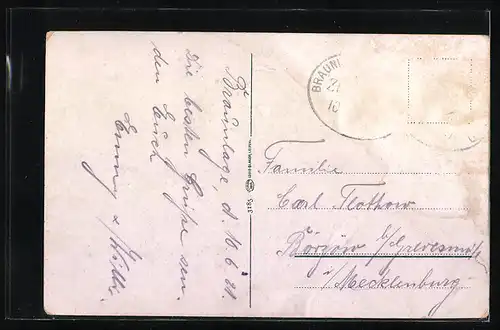 Braunlage, d. 16.6.21.
Die besten Grüße sen-
den Euch
Emmy u. Willi.
3185
BRAUNL
Familie
Carl Flothow
Börzow b/Grevesmüh.
i/Mecklenburg